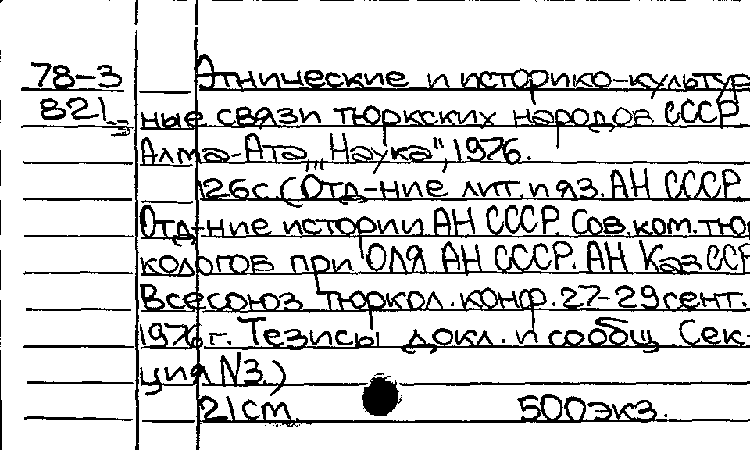 78-3 Этнические и историко-культур
821 ные связи тюркских народов СССР
Алма-Ата, "Наука", 1976.
126с. (Отд-ние лит. и яз. АН СССР
Отд-ние истории АН СССР. Сов. ком. тюр
кологов при ОЛЯ АН СССР. АН КазССР
Всесоюз. тюркол. конф. 27-29 сент.
1976 г. Тезисы докл. и сообщ. Сек-
ция N3.)
21 см. 500 экз.